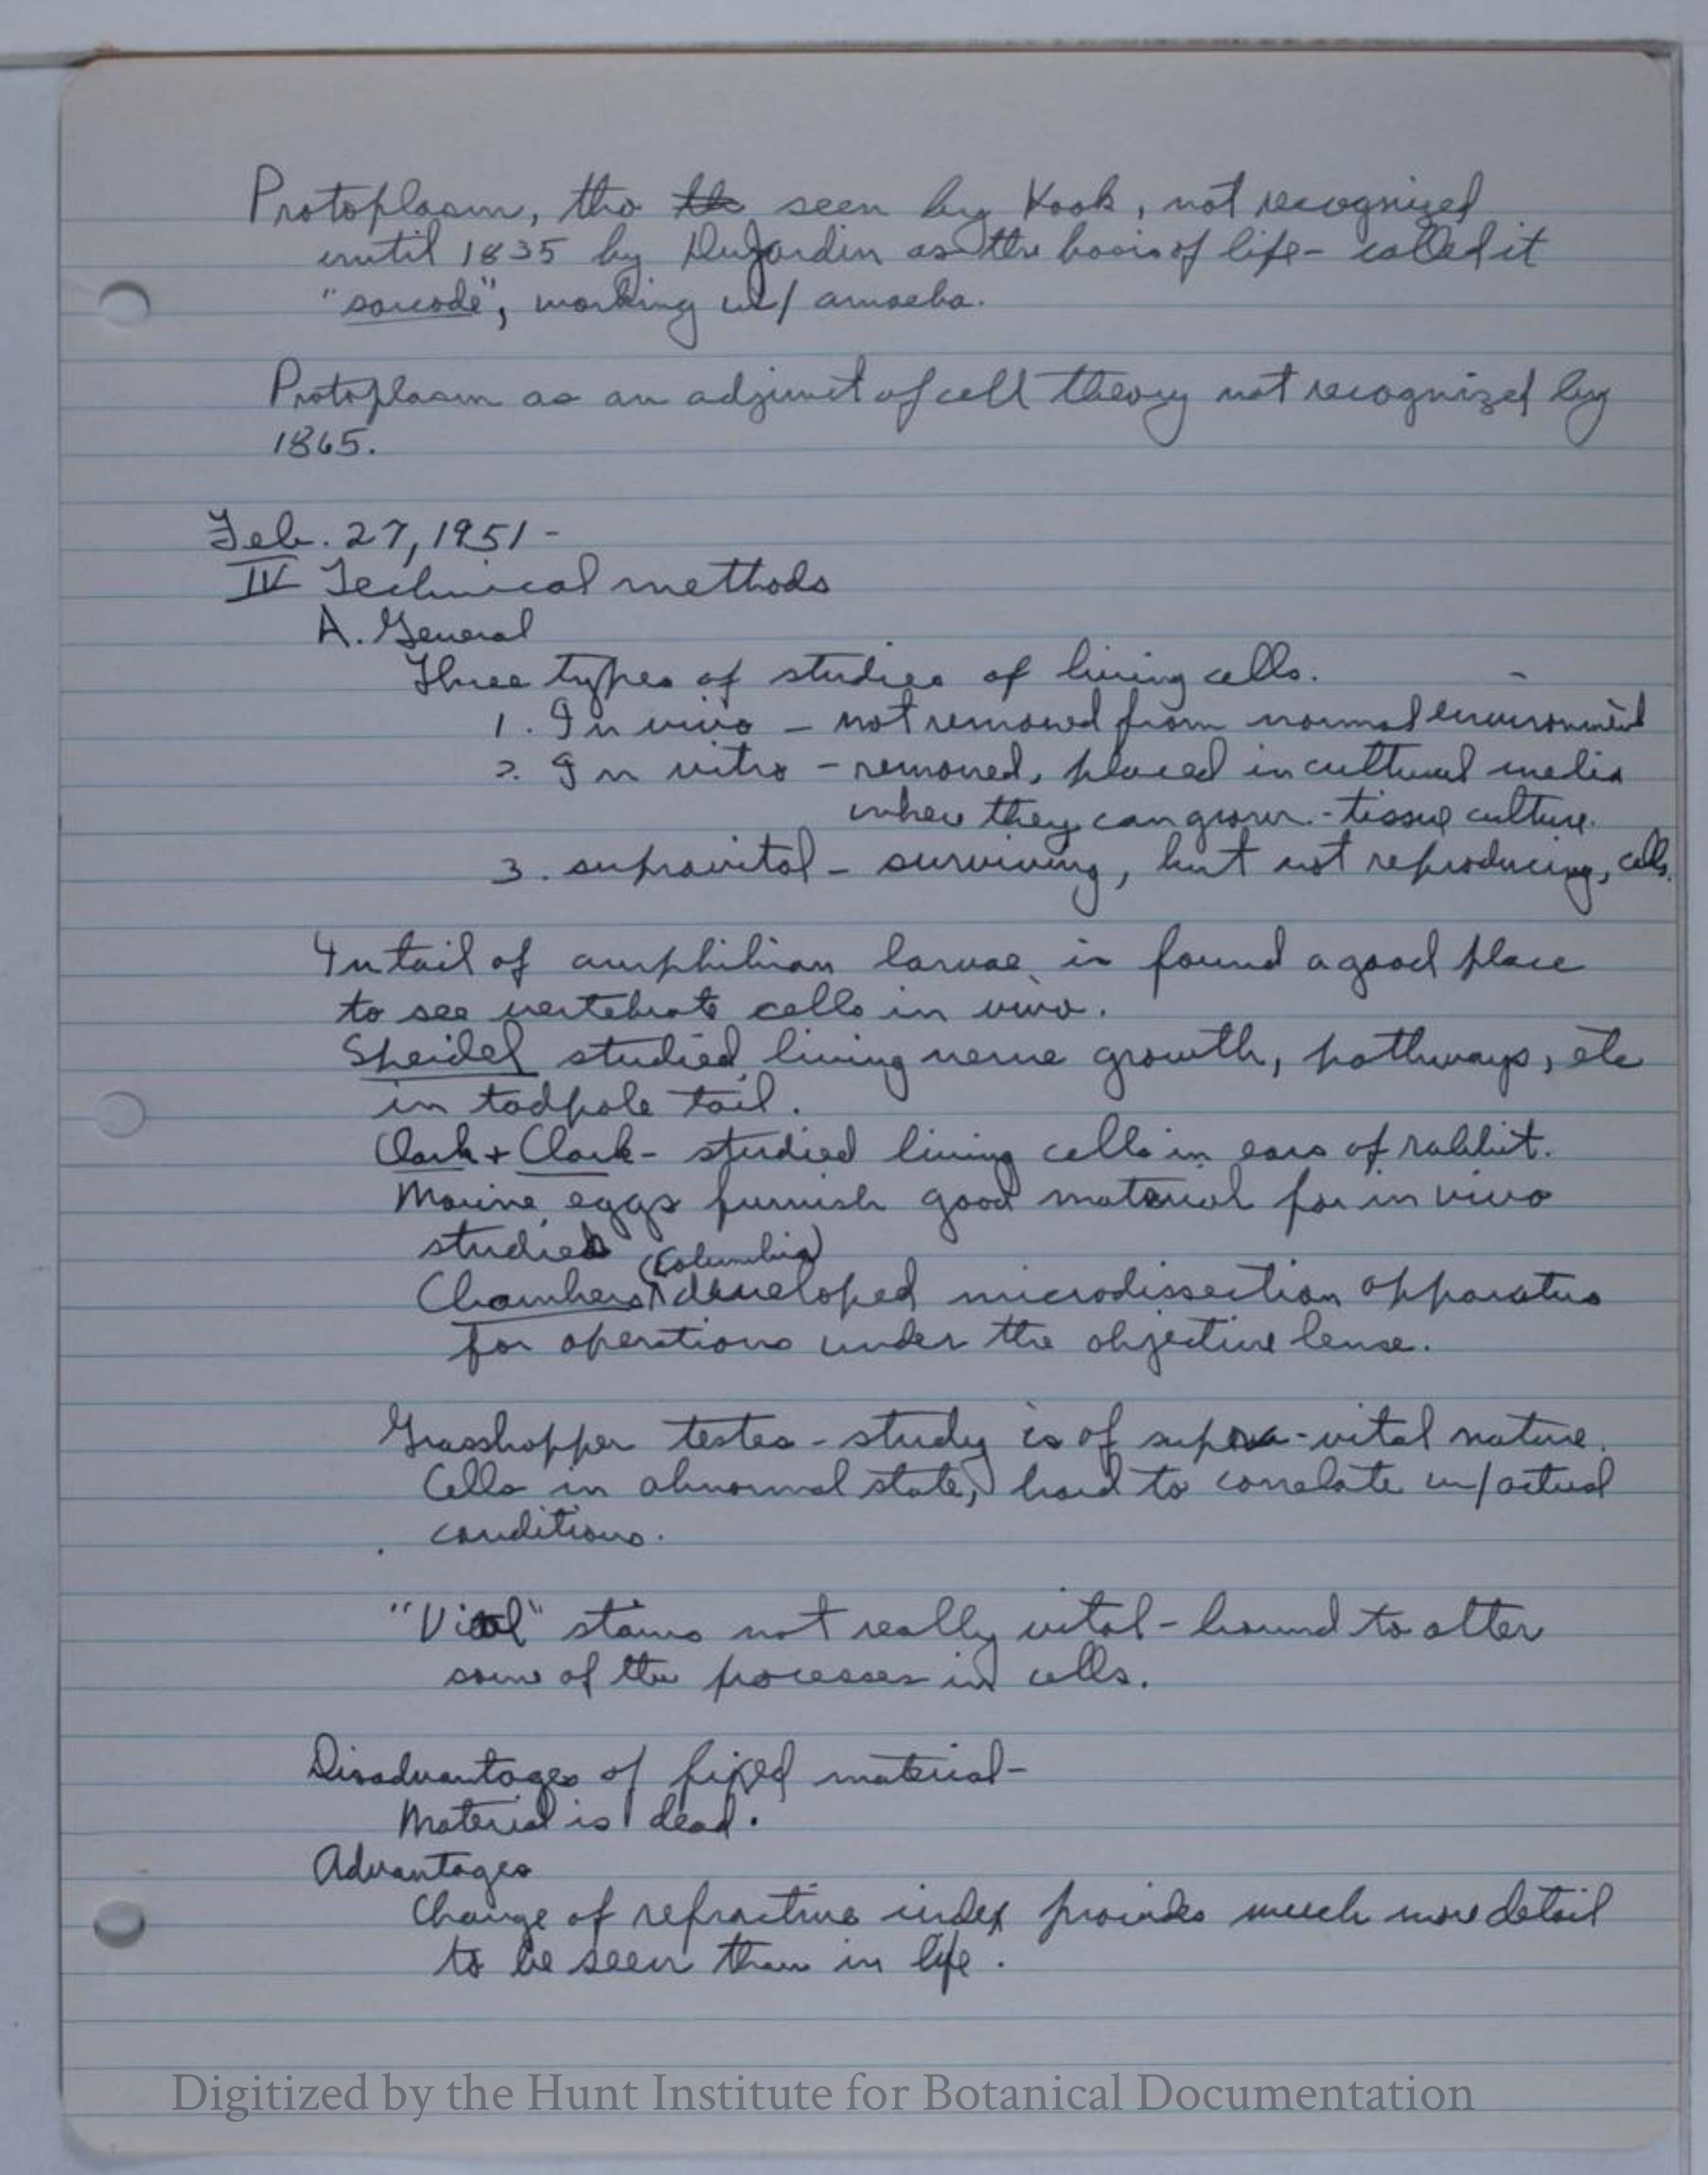 Protoplasm, tho the seen by Hook, not recognized
until 1835 by Dujardin as the basis of life - called it
"sarcode", working w/ amoeba.
Protoplasm as an adjunct of cell theory not recognized by
1865.
Feb. 27, 1951 -
IV Technical methods
A. General
Three types of studies of living cells.
1. In vivo - not removed from normal environment
2. In vitro - removed, placed in cultural media
where they can grow. - tissue culture.
3. supravital - surviving, but not reproducing, cells.
In tail of amphibian larvae is found a good place
to see vertebrate cells in vivo.
Speidel studied living nerve growth, pathways, etc
in tadpole tail.
Clark + Clark - studied living cells in ears of rabbit.
Marine eggs furnish good material for in vivo
studies
(Columbia)
Chambers developed microdissection apparatus
for operations under the objective lense.
Grasshopper testes - study is of supra-vital nature.
Cells in abnormal state, hard to correlate w/ actual
conditions.
"Vital" stains not really vital - bound to alter
some of the processes in cells.
Disadvantages of fixed material -
Material is dead.
Advantages
Change of refractive index provides much more detail
to be seen than in life.
Digitized by the Hunt Institute for Botanical Documentation